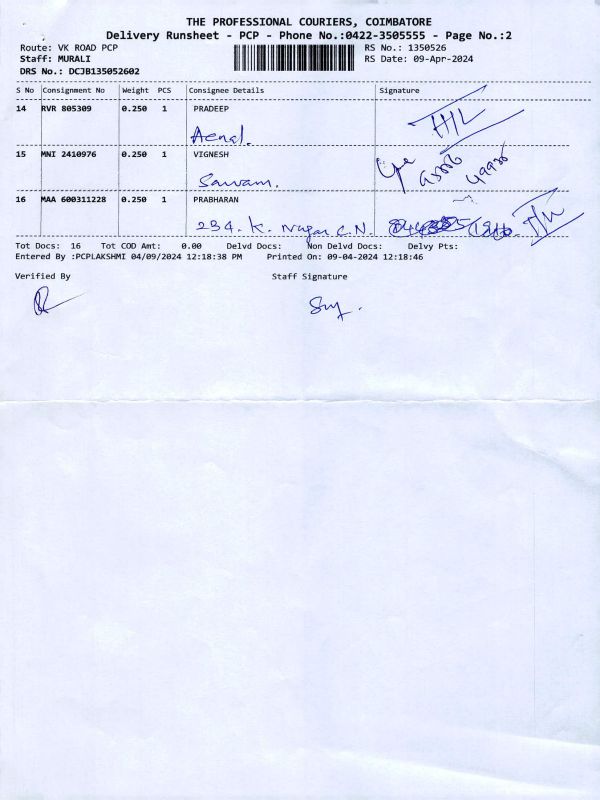 THE PROFESSIONAL COURIERS, COIMBATORE
Delivery Runsheet - PCP - Phone No.:0422-3505555 - Page No.:2
Route: VK ROAD PCP RS No.: 1350526
Staff: MURALI RS Date: 09-Apr-2024
DRS No.: DCJB135052602
S No Consignment No Weight PCS Consignee Details Signature
14 RVR 805309 0.250 1 PRADEEP
15 MNI 2410976 0.250 1 VIGNESH
16 MAA 600311228 0.250 1 PRABHARAN
234. K. Nagar C.N.
Tot Docs: 16 Tot COD Amt: 0.00 Delvd Docs: Non Delvd Docs: Delvy Pts:
Entered By :PCPLAKSHMI 04/09/2024 12:18:38 PM Printed On: 09-04-2024 12:18:46
Verified By Staff Signature